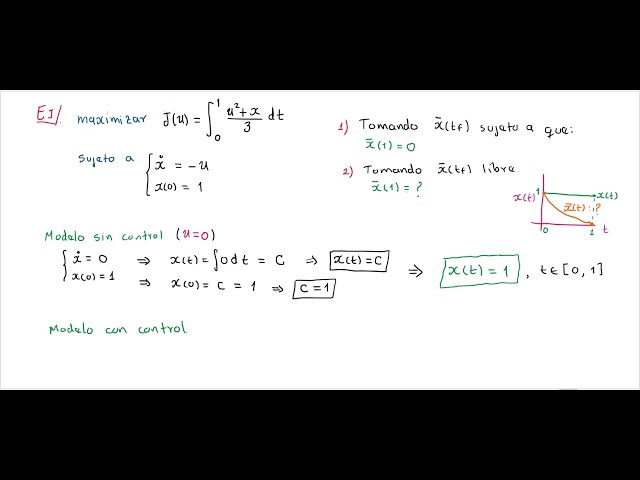 EJ/. maximizar J(u) = ∫₀¹ (u²+x)/3 dt
sujeto a { ẋ = -u
x(0) = 1
1) Tomando x̄(tf) sujeto a que:
x̄(1) = 0
2) Tomando x̄(tf) libre.
x̄(1) = ?
x(t) 1 x(t)
x̄(t): ?
0 1 t
Modelo sin control (u=0)
{ ẋ = 0 ⇒ x(t) = ∫0 dt = C ⇒ x(t) = C
x(0) = 1 ⇒ x(0) = C = 1 ⇒ C = 1
⇒ x(t) = 1 , t ∈ [0, 1]
Modelo con control